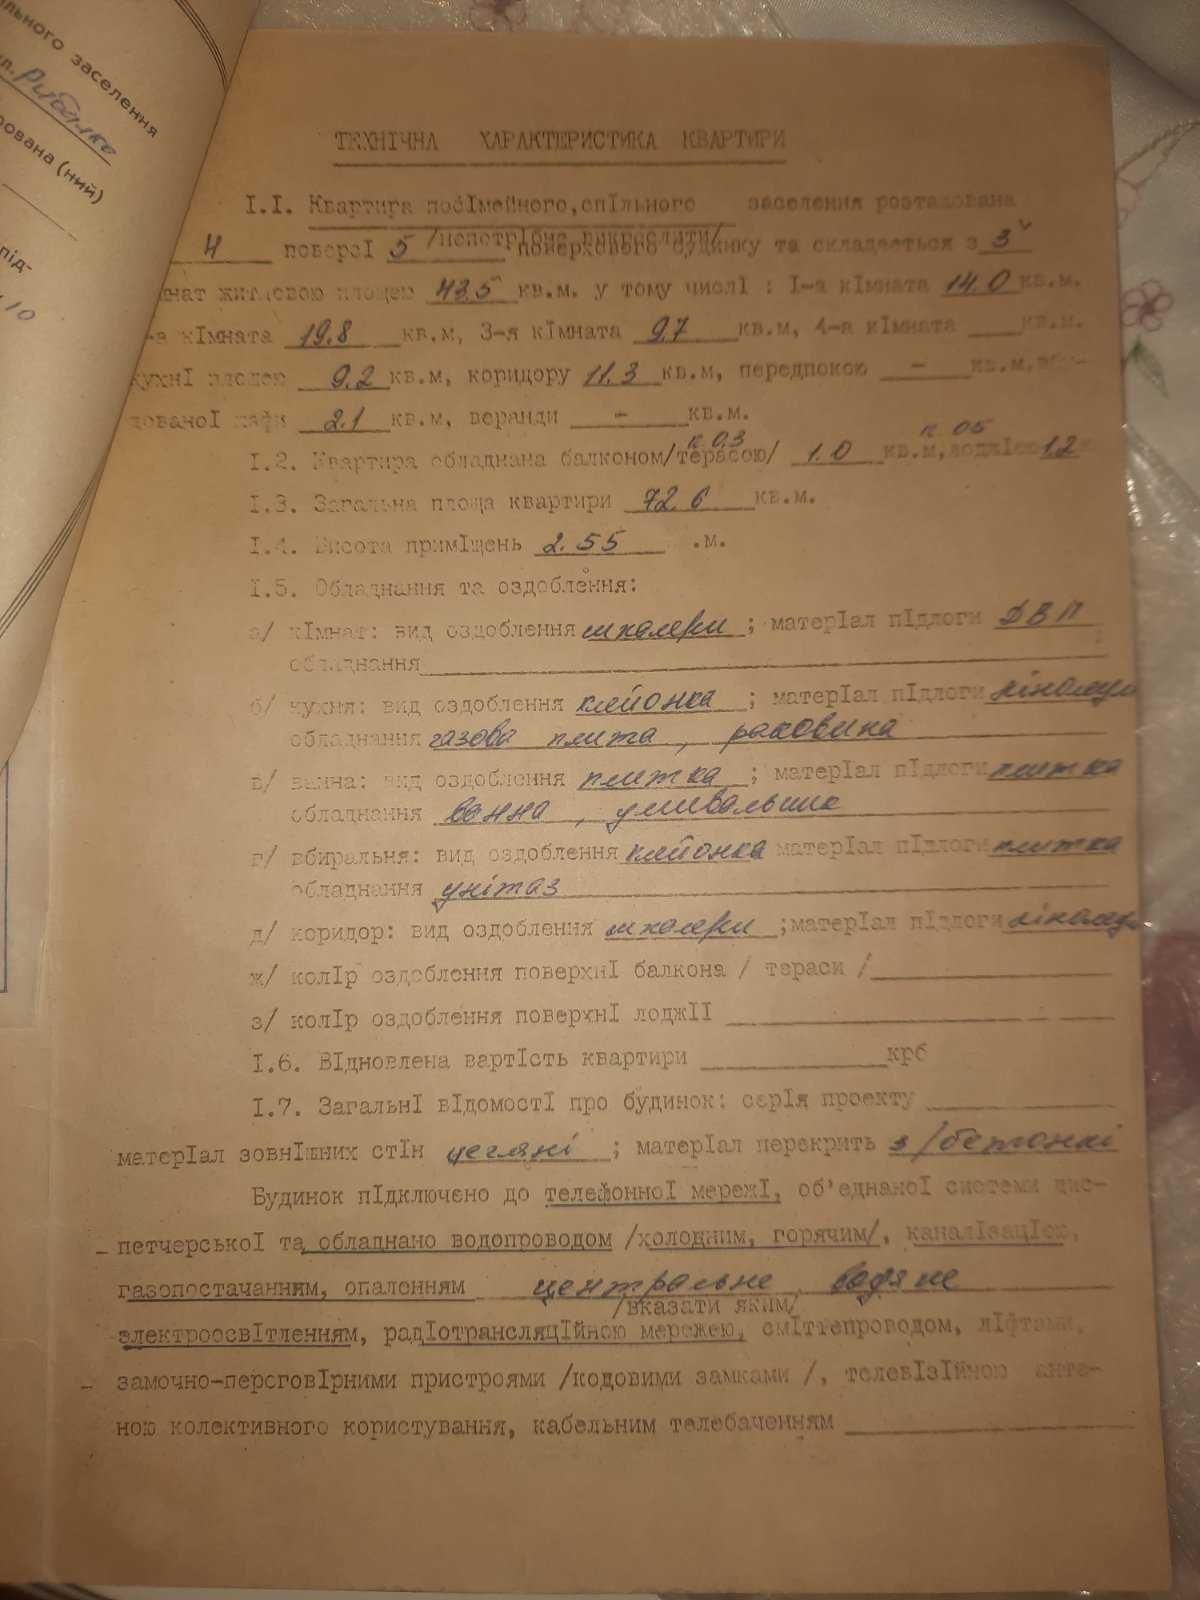 льного заселення
Рибалко
ована (ний)
під-
10
ТЕХНІЧНА ХАРАКТЕРИСТИКА КВАРТИРИ
І.І. Квартира посімейного,спільного заселення розташована
/непотрібне закреслити/
4 поверсі 5 поверхового будинку та складається з 3
нат житловою площею 43.5 кв.м. у тому числі : І-а кімната 14.0 кв.м.
-а кімната 19.8 кв.м, 3-я кімната 9.7 кв.м, 4-а кімната кв.м.
кухні площею 9.2 кв.м, коридору 11.3 кв.м, передпокою - кв.м,вбу-
дованої шафи 2.1 кв.м, веранди - кв.м.
к 0.3 к 05
І.2. Квартира обладнана балконом/терасою/ 1.0 кв.м,лоджією 1.2
І.3. Загальна площа квартири 72.6 кв.м.
І.4. Висота приміщень 2.55 .м.
І.5. Обладнання та оздоблення:
а/ кімнат: вид оздоблення шпалери ; матеріал підлоги ДВП
обладнання
б/ кухня: вид оздоблення клейонка ; матеріал підлоги лінолеум
обладнання газова плита , раковина
в/ ванна: вид оздоблення плитка ; матеріал підлоги плитка
обладнання ванна , умивальник
г/ вбиральня: вид оздоблення клейонка матеріал підлоги плитка
обладнання унітаз
д/ коридор: вид оздоблення шпалери ;матеріал підлоги лінолеум
ж/ колір оздоблення поверхні балкона / тераси /
з/ колір оздоблення поверхні лоджії
І.6. Відновлена вартість квартири крб
І.7. Загальні відомості про будинок: серія проекту
матеріал зовнішних стін цегляні ; матеріал перекрить з/бетонні
Будинок підключено до телефонної мережі, об'єднаної системи дис-
петчерської та обладнано водопроводом /холодним, горячим/, каналізацією,
газопостачанням, опаленням центральне водяне
/вказати яким/
электроосвітленням, радіотрансляційною мережею, сміттєпроводом, ліфтами,
замочно-переговірними пристроями /кодовими замками /, телевізійною анте-
ною колективного користування, кабельним телебаченням